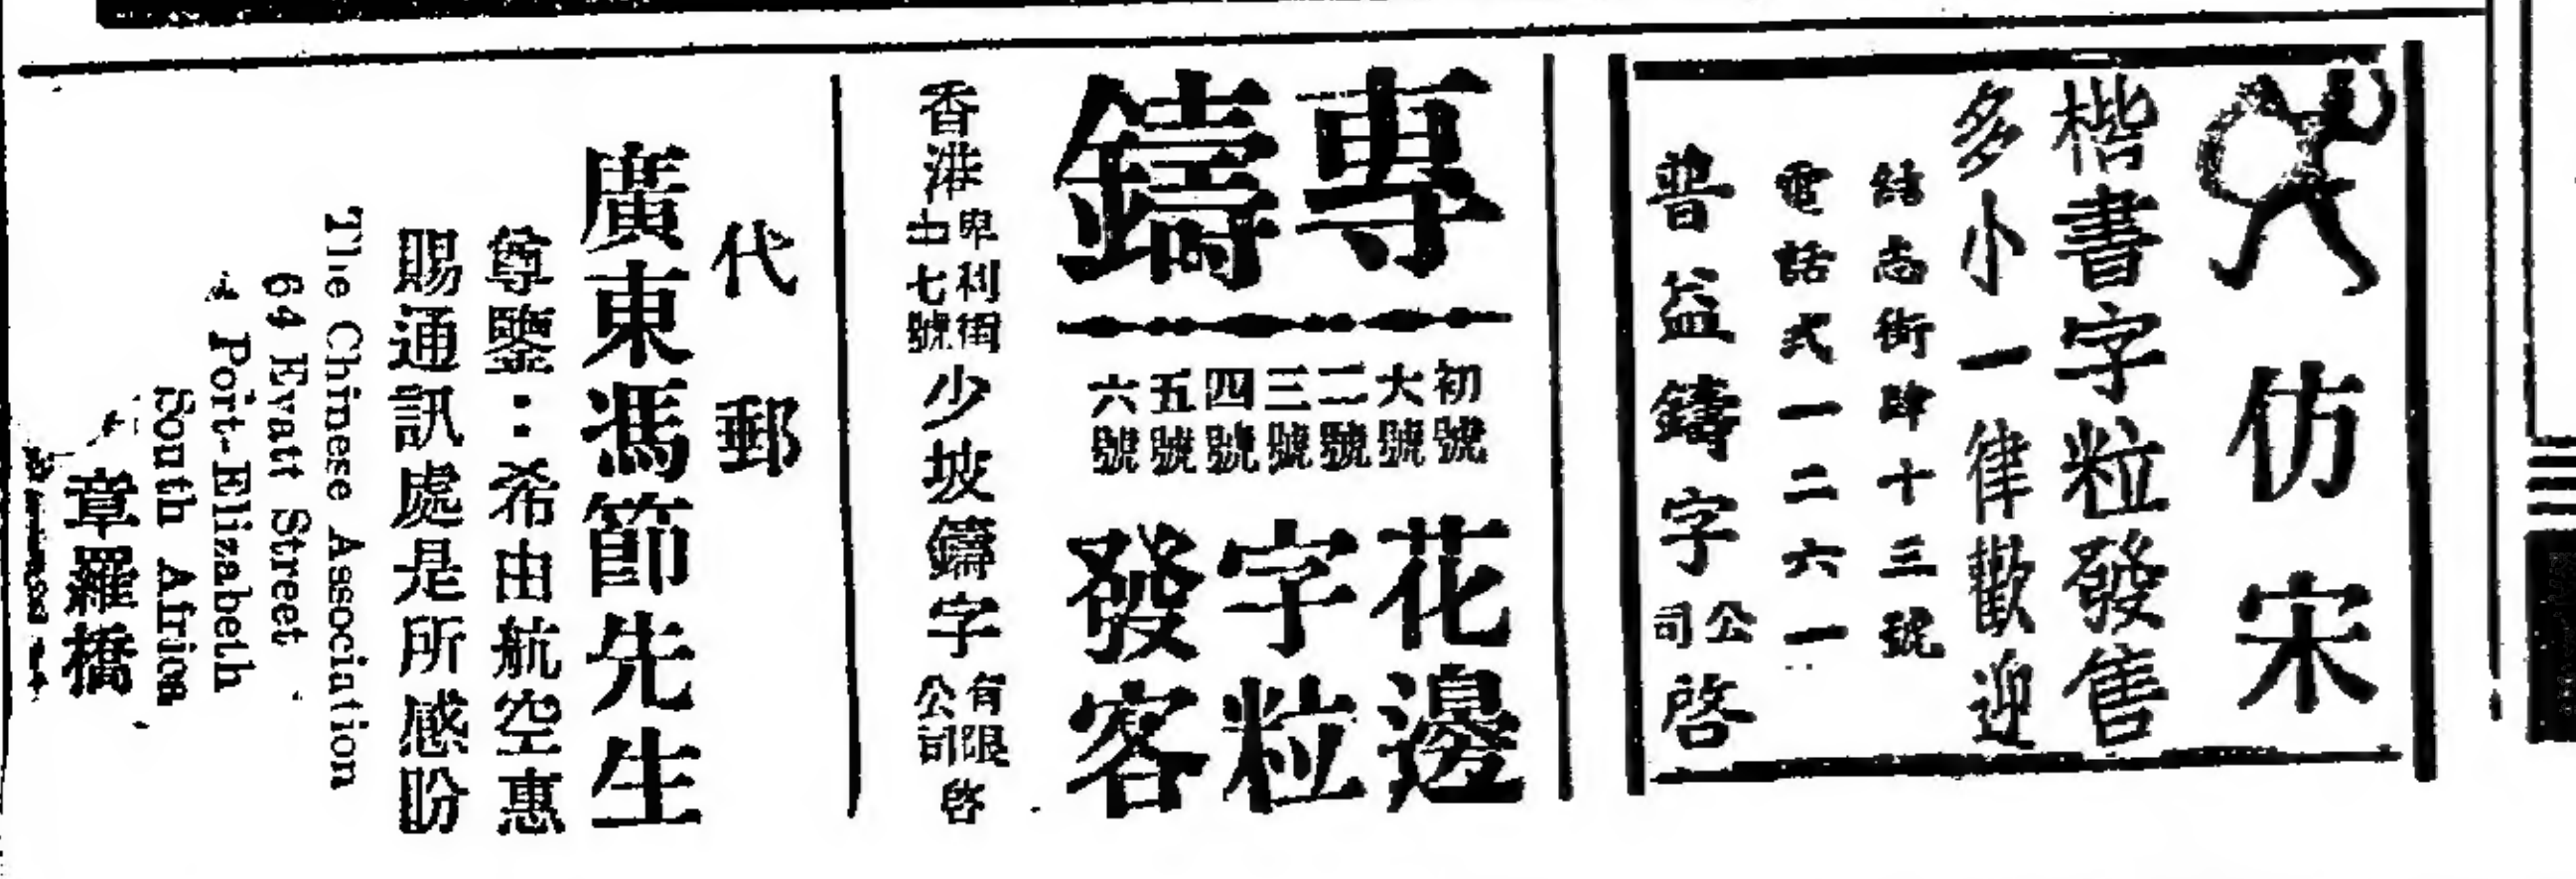 仿宋
楷書字粒發售
多小一律歡迎
結志街肆十三號
電話弍一二六一
普益鑄字公司啓
專鑄
初號
大號
二號
三號
四號
五號
六號
花邊
字粒
發客
香港卑利街七號少坡鑄字有限公司啓
代郵
廣東馮節先生
尊鑒：希由航空惠
賜通訊處是所感盼
The Chinese Association
64 Evatt Street
Port-Elizabeth
South Africa
章羅橋